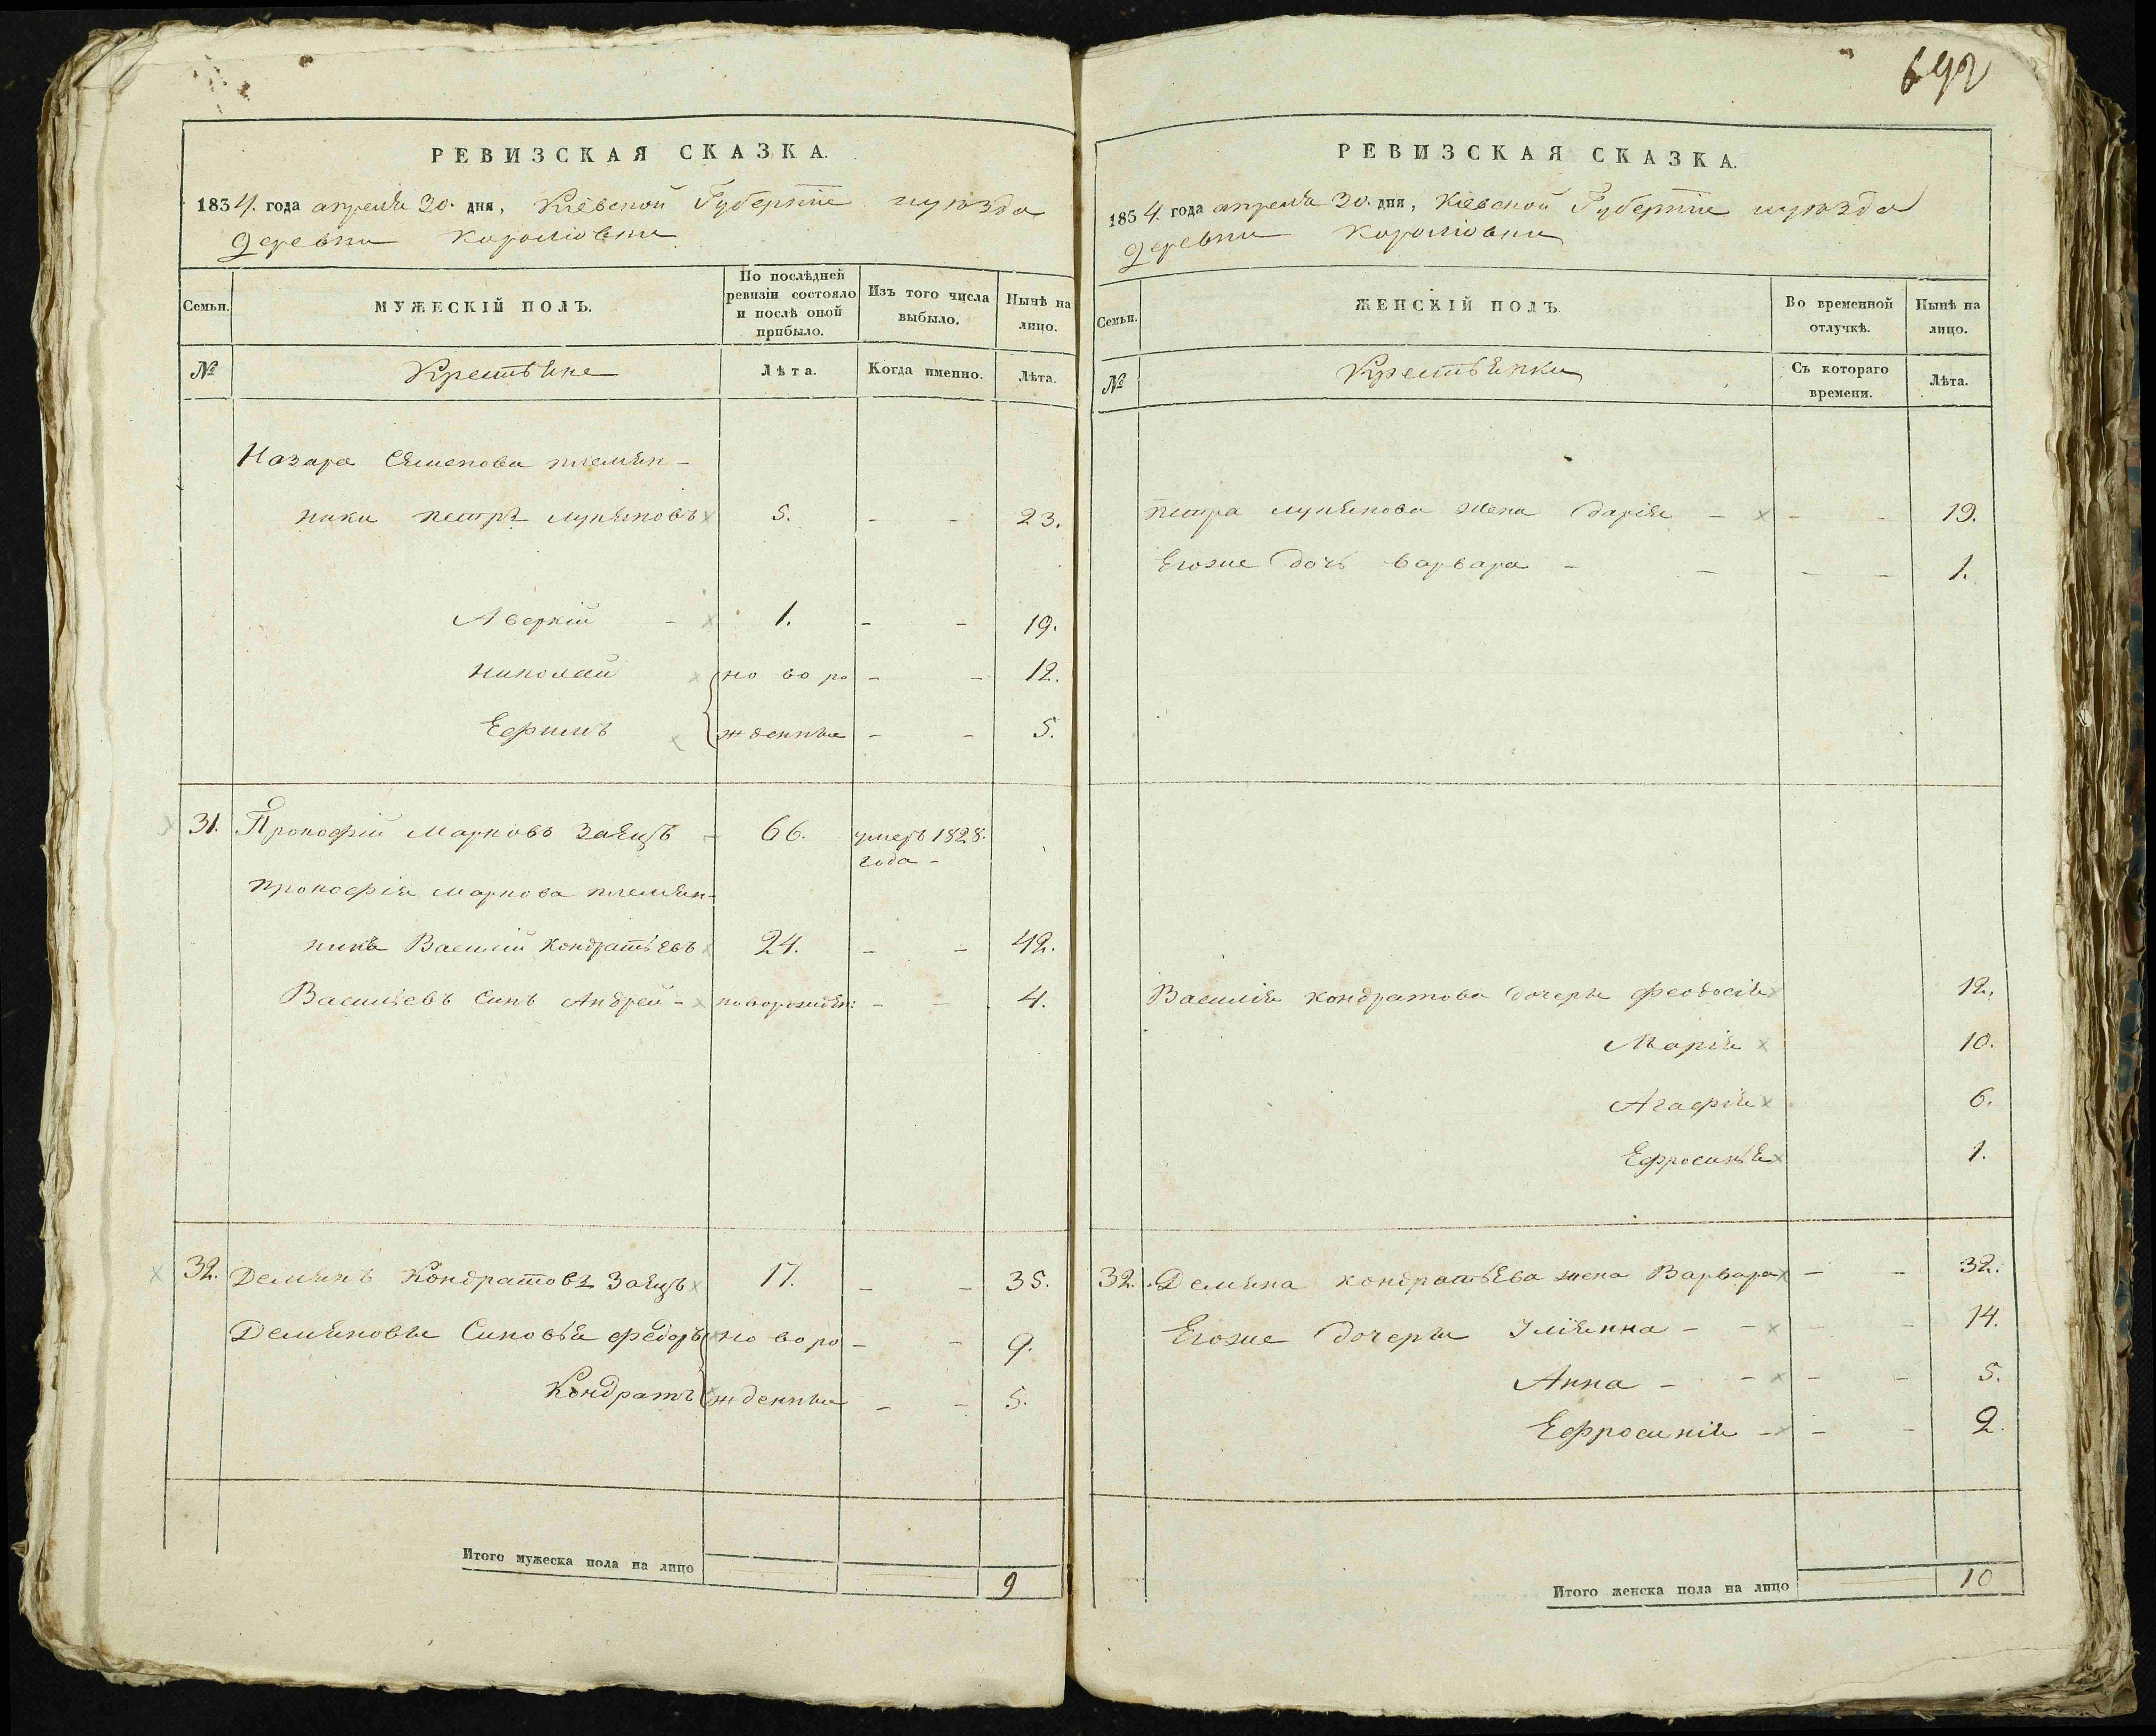 692
РЕВИЗСКАЯ СКАЗКА.
1834. года апреля 30. дня, Киевской Губернии и уезда
деревни Королювки
Семьи.
МУЖЕСКІЙ ПОЛЪ.
По послѣдней
ревизіи состояло
и послѣ оной
прибыло.
Изъ того числа
выбыло.
Нынѣ на
лицо.
№
Крестьяне
Лѣта.
Когда именно.
Лѣта.
Назара Семенова племян-
ники петръ лукяновъ 5. - - 23.
Аверкій - 1. - - 19.
Николай ново ро - - 12.
Ефимъ жденные - - 5.
31. Прокофій Марковъ Заяцъ - 66. умеръ 1828.
года -
Прокофія Маркова племян-
никъ Василій Кондратьевъ 24. - - 42.
Васильевъ Синъ Андрей - новорожден: - - 4.
32. Демянъ Кондратовъ Заяцъ 17. - - 35.
Демяновы Синовья федоръ ново ро - - 9.
Кондратъ жденные - - 5.
Итого мужеска пола на лицо 9
РЕВИЗСКАЯ СКАЗКА.
1834. года апреля 30. дня, Киевской Губернии и уезда
деревни Королювки
Семьи.
ЖЕНСКІЙ ПОЛЪ.
Во временной
отлучкѣ.
Нынѣ на
лицо.
№
Крестьянки
Съ котораго
времени.
Лѣта.
Петра лукянова жена Дарія - - - 19.
Егоже дочь варвара - - - - 1.
Василія кондратова дочери феодосія 12.
Марія 10.
Агафія 6.
Ефросинія 1.
32. Демяна кондратьева жена Варвара - - 32.
Егоже дочери Уліянна - - - - 14.
Анна - - - - 5.
Ефросинія - - - 2.
Итого женска пола на лицо 10